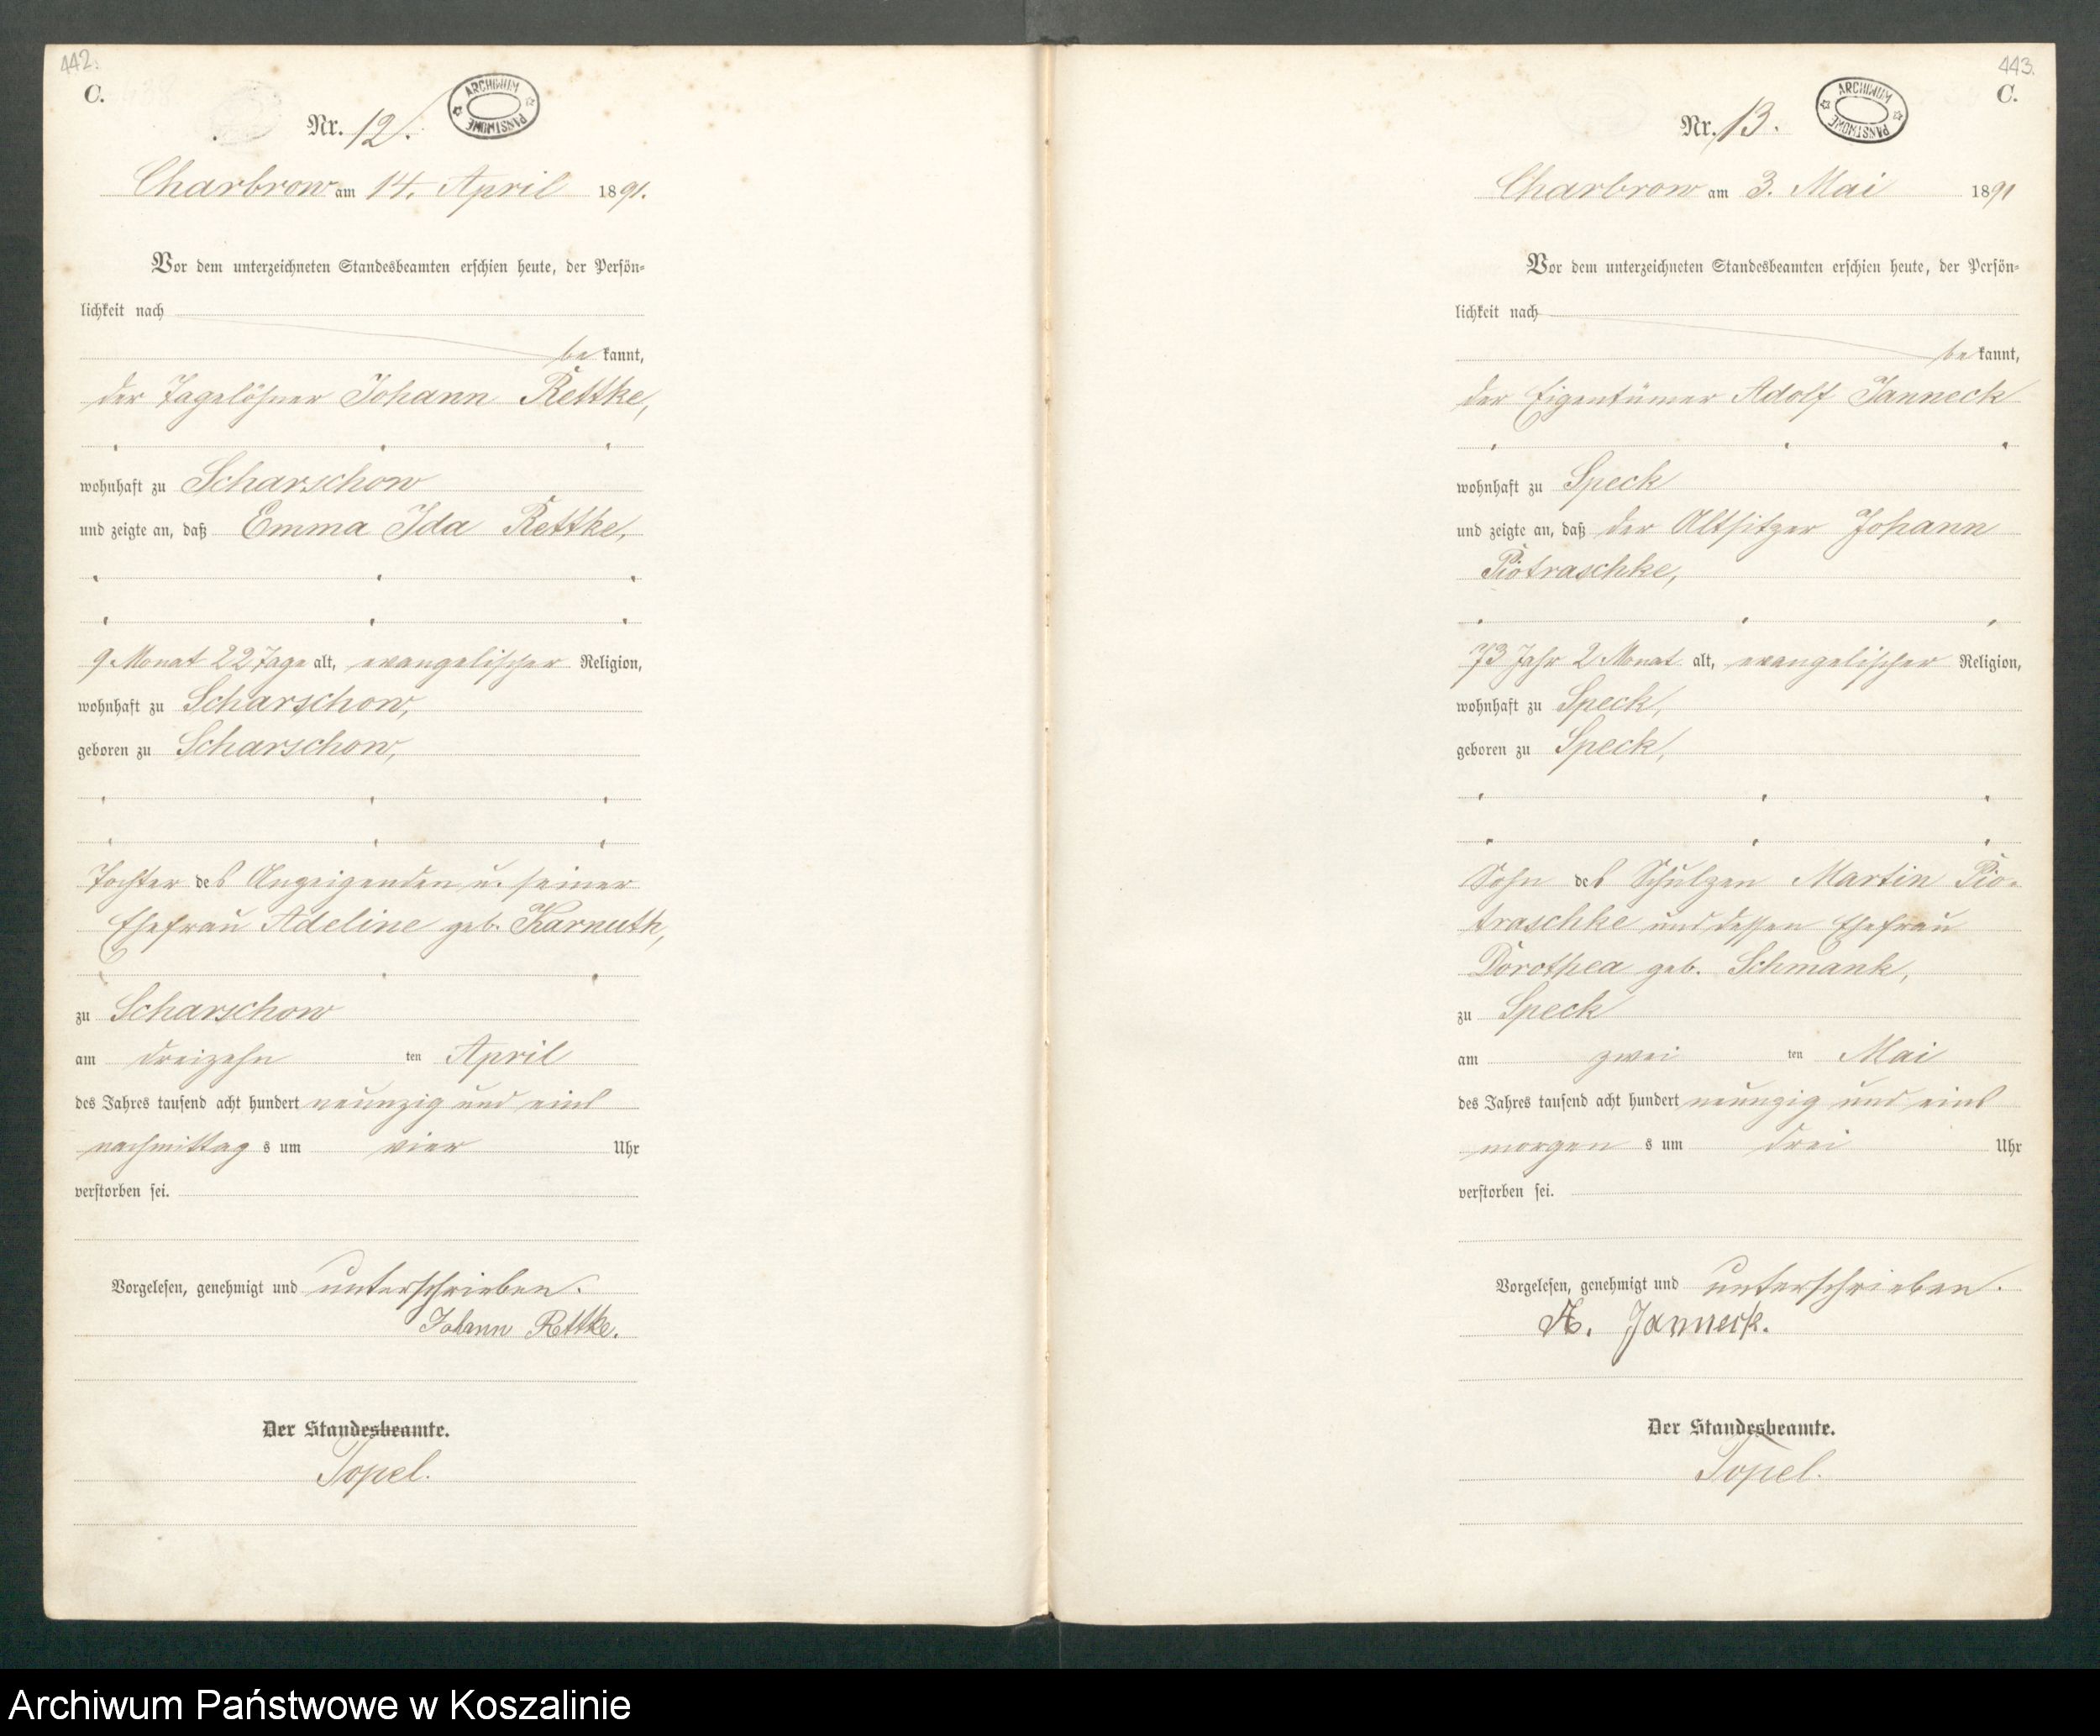 442.
C.
ARCHIWUM PAŃSTWOWE
Nr. 12.
Charbrow am 14. April 1891.
Vor dem unterzeichneten Standesbeamten erschien heute, der Persön=
lichkeit nach
be kannt,
der Tagelöhner Johann Rettke,
wohnhaft zu Scharschow
und zeigte an, daß Emma Ida Rettke,
9 Monat 22 Tage alt, evangelischer Religion,
wohnhaft zu Scharschow,
geboren zu Scharschow,
Tochter des Anzeigenden u. seiner
Ehefrau Adeline geb. Karnuth,
zu Scharschow
am dreizehn ten April
des Jahres tausend acht hundert neunzig und eins
nachmittag s um vier Uhr
verstorben sei.
Vorgelesen, genehmigt und unterschrieben.
Johann Rettke.
Der Standesbeamte.
Topel.
443.
C.
ARCHIWUM PAŃSTWOWE
Nr. 13.
Charbrow am 3. Mai 1891
Vor dem unterzeichneten Standesbeamten erschien heute, der Persön=
lichkeit nach
be kannt,
der Eigentümer Adolf Janneck
wohnhaft zu Speck
und zeigte an, daß der Altsitzer Johann
Piotraschke,
73 Jahr 2 Monat alt, evangelischer Religion,
wohnhaft zu Speck,
geboren zu Speck,
Sohn des Schulzen Martin Pio-
traschke und dessen Ehefrau
Dorothea geb. Schmank,
zu Speck
am zwei ten Mai
des Jahres tausend acht hundert neunzig und eins
morgen s um drei Uhr
verstorben sei.
Vorgelesen, genehmigt und unterschrieben.
A. Janneck.
Der Standesbeamte.
Topel.
Archiwum Państwowe w Koszalinie